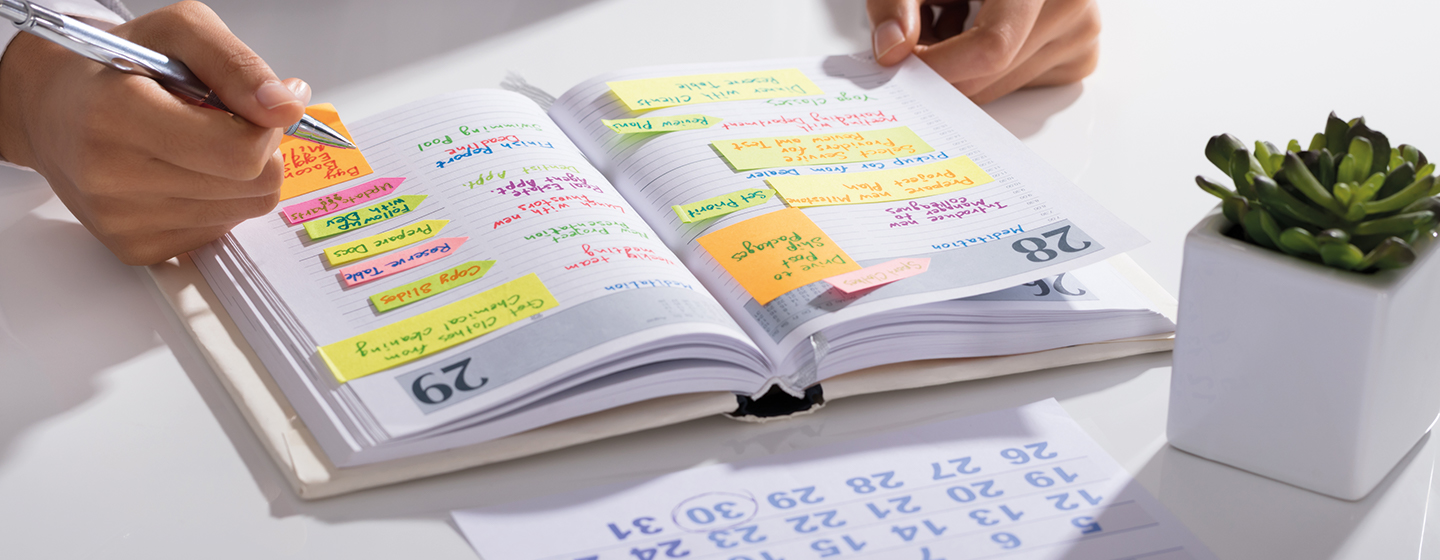 28
Meditation
Introduce new
Manager to
colleagues
Prepare new Milestone
Project Plan
Pickup Car from Dealer
Select Service
Providers for Test
Review and Test
Meeting with
Marketing Department
Yoga Classes
Dinner with Clients
Reserve Table
Drive to
Post
Ship
Packages
Set Priorit
Review Plans
26
29
Meditation
Weekly team
meeting
New Project
Presentation
Lunch with new
Investors
Real Estate
Agent Appt
Dentist Appt.
Finish Report
Deadline
Swimming Pool
Get Clothes from
Chemical cleaning
Copy Slides
Reserve Table
Prepare Docs
Follow up
with Dev
Update
Buy
Bacon
Eggs
5 6 7
12 13 14 15
19 20 21 22 23 24
26 27 28 29 30 31